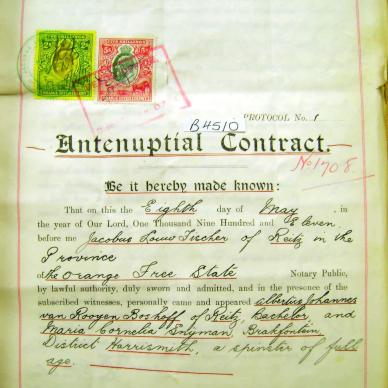 PROTOCOL No. 1
B4510
Antenuptial Contract.
No 1708.
Be it hereby made known:
That on this the Eighth day of May, in
the year of Our Lord, One Thousand Nine Hundred and Eleven
before me Jacobus Louw Fischer of Reitz in the
Province
of the Orange Free State Notary Public,
by lawful authority, duly sworn and admitted, and in the presence of the
subscribed witnesses, personally came and appeared Albertus Johannes
van Rooyen Boshoff of Reitz, Bachelor, and
Maria Cornelia Snyman, Brakfontein
District Harrismith, a spinster of full
age.